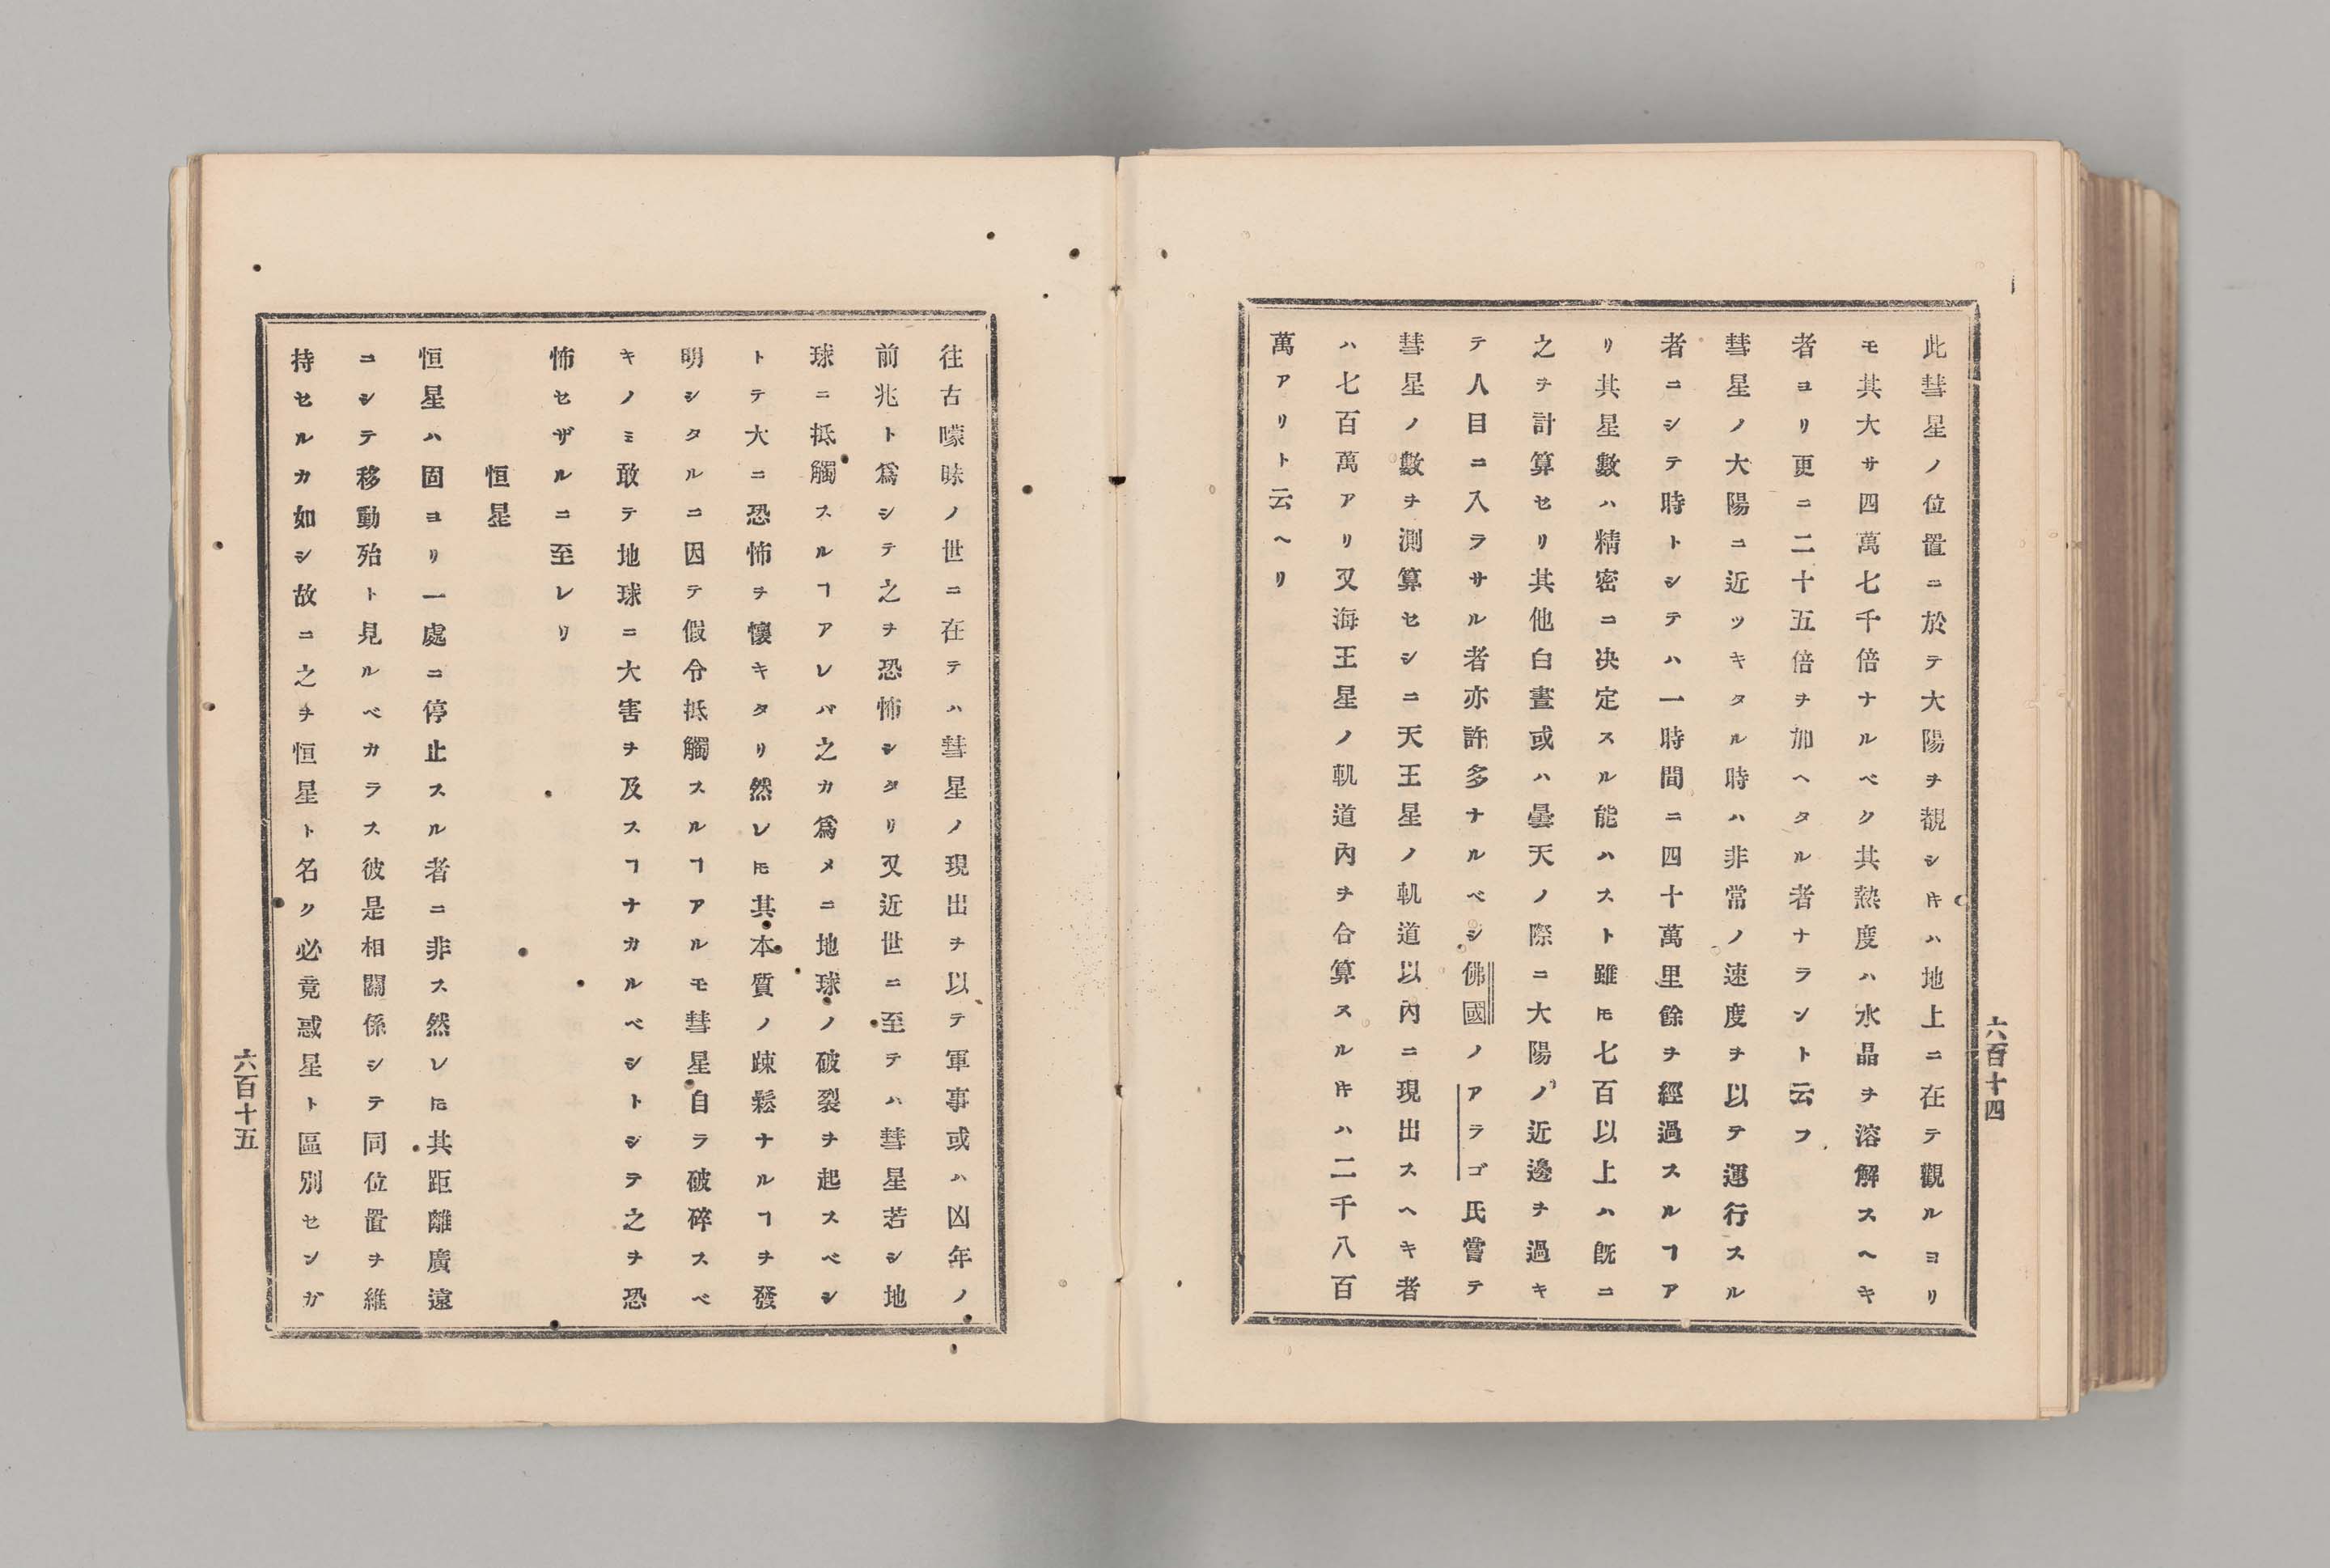 此彗星ノ位置ニ於テ大陽ヲ観シ𪜈ハ地上ニ在テ觀ルヨリ
モ其大サ四萬七千倍ナルベク其熱度ハ水晶ヲ溶解スヘキ
者ヨリ更ニ二十五倍ヲ加ヘタル者ナラント云フ
彗星ノ大陽ニ近ツキタル時ハ非常ノ速度ヲ以テ運行スル
者ニシテ時トシテハ一時間ニ四十萬里餘ヲ經過スルヿア
リ其星數ハ精密ニ决定スル能ハスト雖𪜈七百以上ハ既ニ
之ヲ計算セリ其他白晝或ハ曇天ノ際ニ大陽ノ近邊ヲ過キ
テ人目ニ入ラサル者亦許多ナルベシ佛國ノアラゴ氏嘗テ
彗星ノ數ヲ測算セシニ天王星ノ軌道以內ニ現出スヘキ者
ハ七百萬アリ又海王星ノ軌道內ヲ合算スル𪜈ハ二千八百
萬アリト云ヘリ
六百十四
往古曚昧ノ世ニ在テハ彗星ノ現出ヲ以テ軍事或ハ凶年ノ
前兆ト爲シテ之ヲ恐怖シタリ又近世ニ至テハ彗星若シ地
球ニ抵觸スルヿアレバ之カ爲メニ地球ノ破裂ヲ起スベシ
トテ大ニ恐怖ヲ懷キタリ然レ𪜈其本質ノ疎鬆ナルヿヲ發
明シタルニ因テ假令抵觸スルヿアルモ彗星自ラ破碎スベ
キノミ敢テ地球ニ大害ヲ及スヿナカルベシトシテ之ヲ恐
怖セザルニ至レリ
恒星
恒星ハ固ヨリ一處ニ停止スル者ニ非ス然レ𪜈其距離廣遠
ニシテ移動殆ト見ルベカラス彼是相關係シテ同位置ヲ維
持セルカ如シ故ニ之ヲ恒星ト名ク必竟惑星ト區別センガ
六百十五